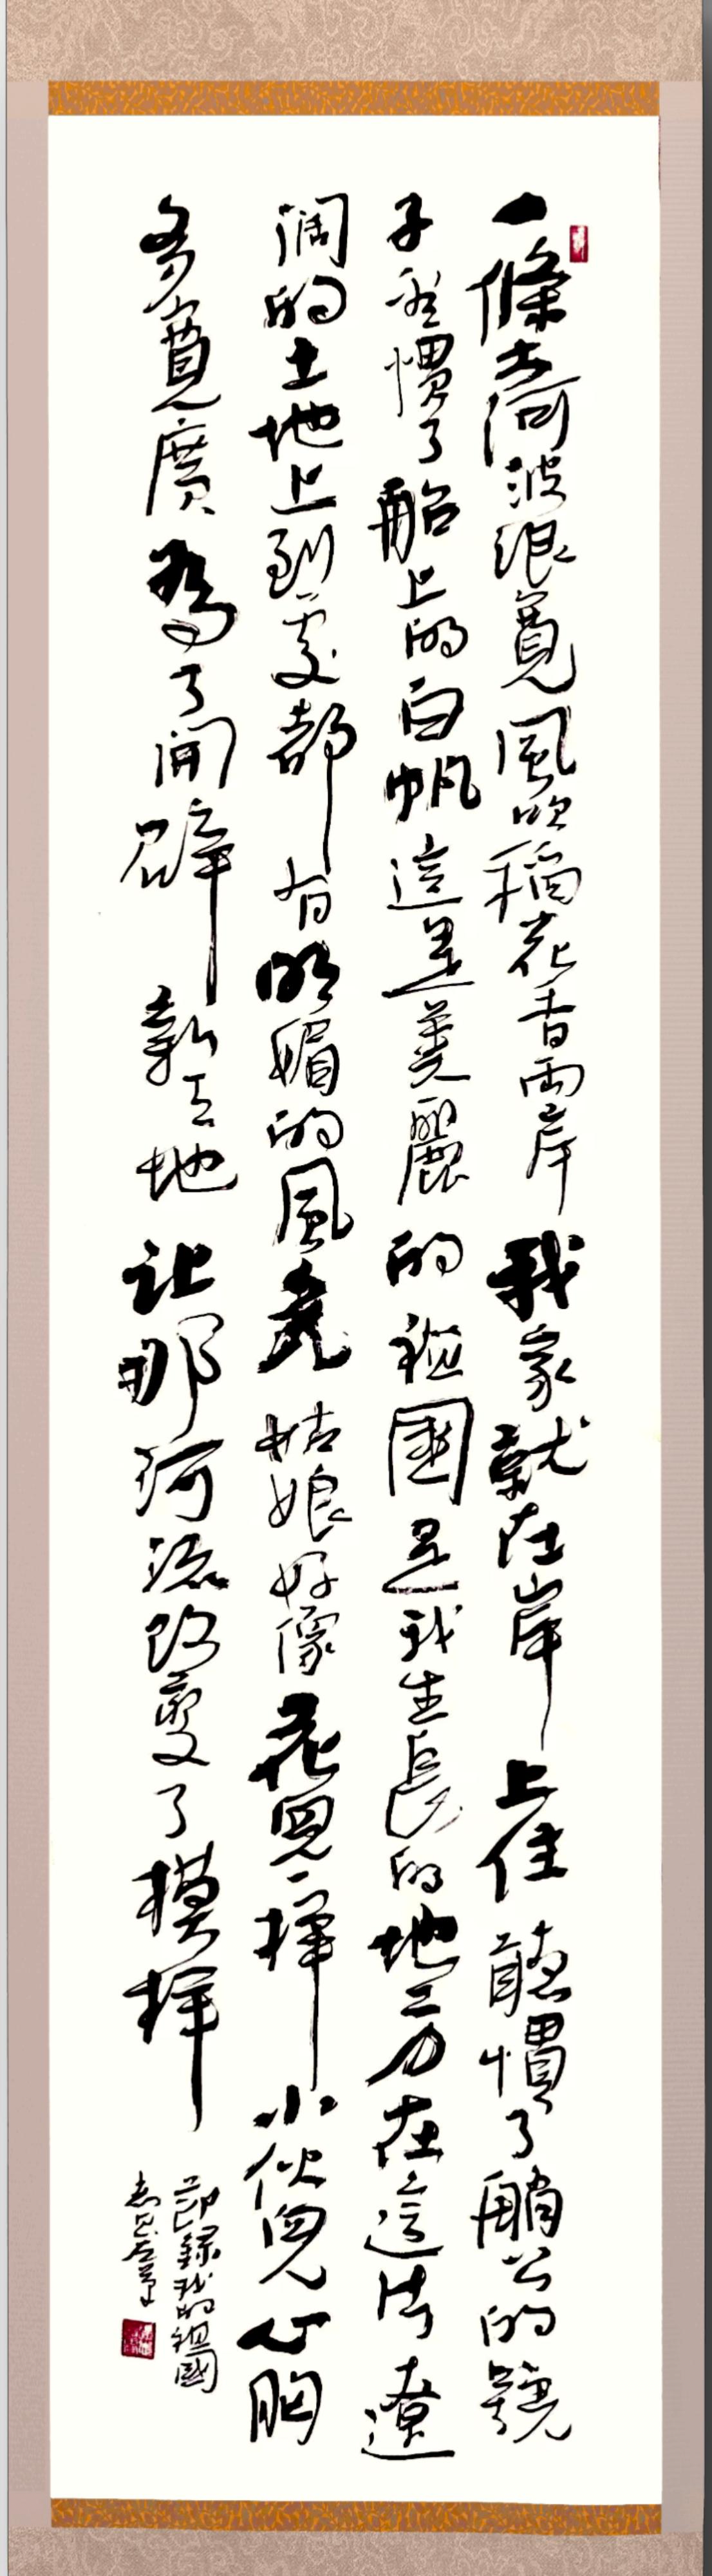 一條大河波浪寬風吹稻花香兩岸我家就在岸上住聽慣了艄公的號
子看慣了船上的白帆這是美麗的祖國是我生長的地方在這片遼
阔的土地上到處都有明媚的風光姑娘好像花兒一样小伙兒心胸
多寬廣為了開辟新天地让那河流改變了模样
節錄我的祖國